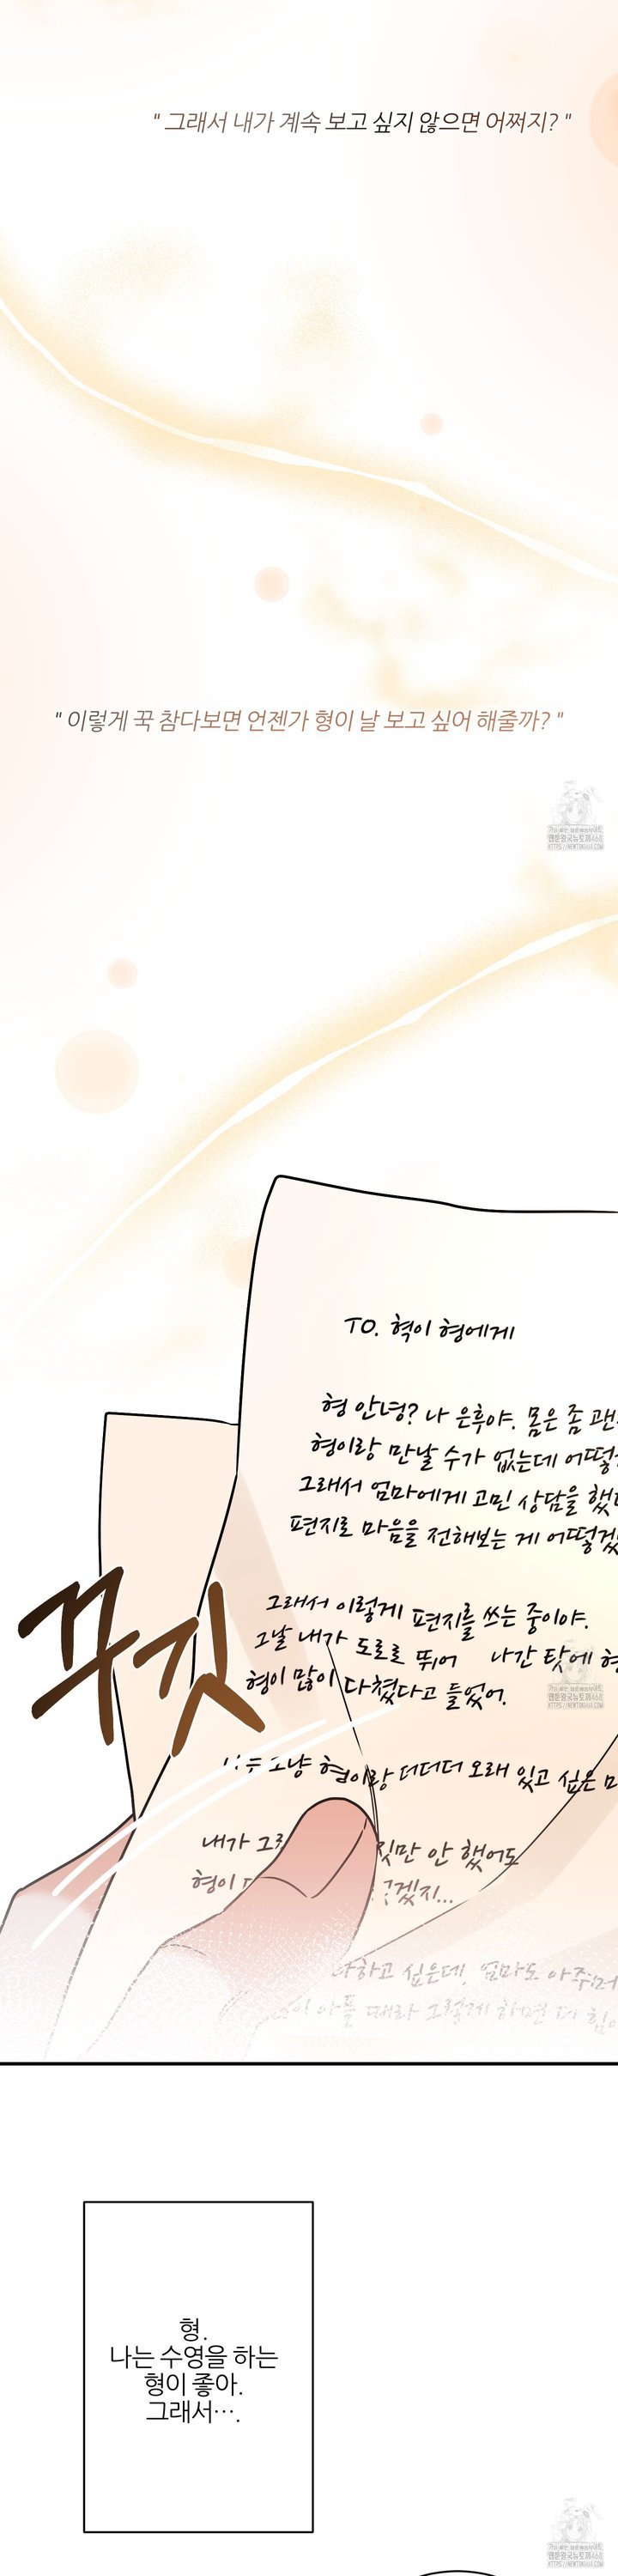 " 그래서 내가 계속 보고 싶지 않으면 어쩌지? "
" 이렇게 꾹 참다보면 언젠가 형이 날 보고 싶어 해줄까? "
TO. 혁이 형에게
형 안녕? 나 은후야. 몸은 좀 괜
형이랑 만날 수가 없는데 어떻
그래서 엄마에게 고민 상담을 했
편지로 마음을 전해보는 게 어떻겠
그래서 이렇게 편지를 쓰는 중이야.
그날 내가 도로로 뛰어 나간 탓에 형
형이 많이 다쳤다고 들었어.
꾸깃
그냥 형이랑 더더더 오래 있고 싶은 마
내가 그 짓만 안 했어도
형이 겠지...
하고 싶은데, 엄마도 아주머
아플 때라 그렇게 하면 더 힘
형.
나는 수영을 하는
형이 좋아.
그래서….